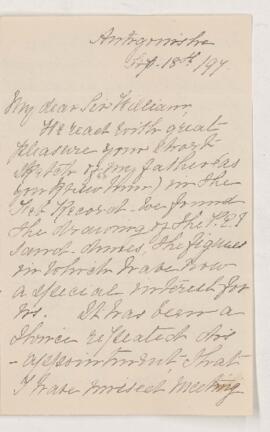 Antigonish
Sep. 18th/97
My dear Sir William,
We read with great
pleasure your short
sketch of my father (as
you knew him) in the
Record - We found
the drawing of the P.E.I
sand-dunes, the figures
in which have now
a special interest for
us. It has been a
thrice repeated dis
-appointment, that
I have missed meeting